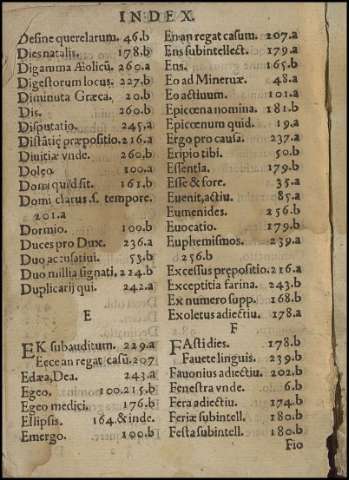 INDEX.
Desine querelarum. 46.b
Dies natalis. 178.b
Digamma Æolicū. 260.a
Digestorum locus. 227.b
Diminuta Græca. 20.b
Dis. 260.b
Disputatio. 245.a
Distātię præpositio. 216.a
Diuitiæ vnde. 260.b
Doleo 100.a
Domi quid sit. 161.b
Domi clarus .s. tempore.
201.a
Dormio. 100.b
Duces pro Dux. 236.a
Duo accusatiui. 53.b
Duo millia signati. 224.b
Duplicarij qui. 242.a
E
EK subauditum. 229.a
Ecce an regat casū. 207
Edæa, Dea. 243.a
Egeo. 100.215.b
Egeo medici. 176.b
Ellipsis. 164.& inde.
Emergo. 100.b
En an regat casum. 207.a
Ens subintellect. 179.a
Ens. 165.b
Eo ad Mineruæ. 48.a
Eo actiuum. 101.a
Epicœna nomina. 181.b
Epicœnum quid. 19.a
Ergo pro causa. 237.a
Eripio tibi. 50.b
Essentia. 179.b
Esse & fore. 35.a
Euenit, actiu. 85.a
Eumenides. 256.b
Euocatio. 179.b
Euphemismos. 239.a
256.b
Excessus prępositio. 216.a
Exceptitia farina. 243.b
Ex numero supp. 168.b
Exoletus adiectiu. 178.a
F
FAsti dies. 178.b
Fauete linguis. 239.b
Fauonius adiectiu. 202.b
Fenestra vnde. 6.b
Fera adiectiu. 174.b
Feriæ subintell. 180.b
Festa subintell. 180.b
Fio